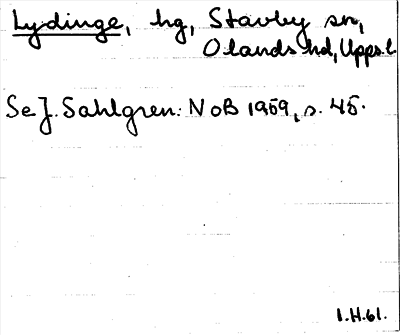 Lydinge, hg, Stavby sn,
Olands hd, Upps.l.
Se J. Sahlgren: NoB 1959, s. 45.
1.H.61.